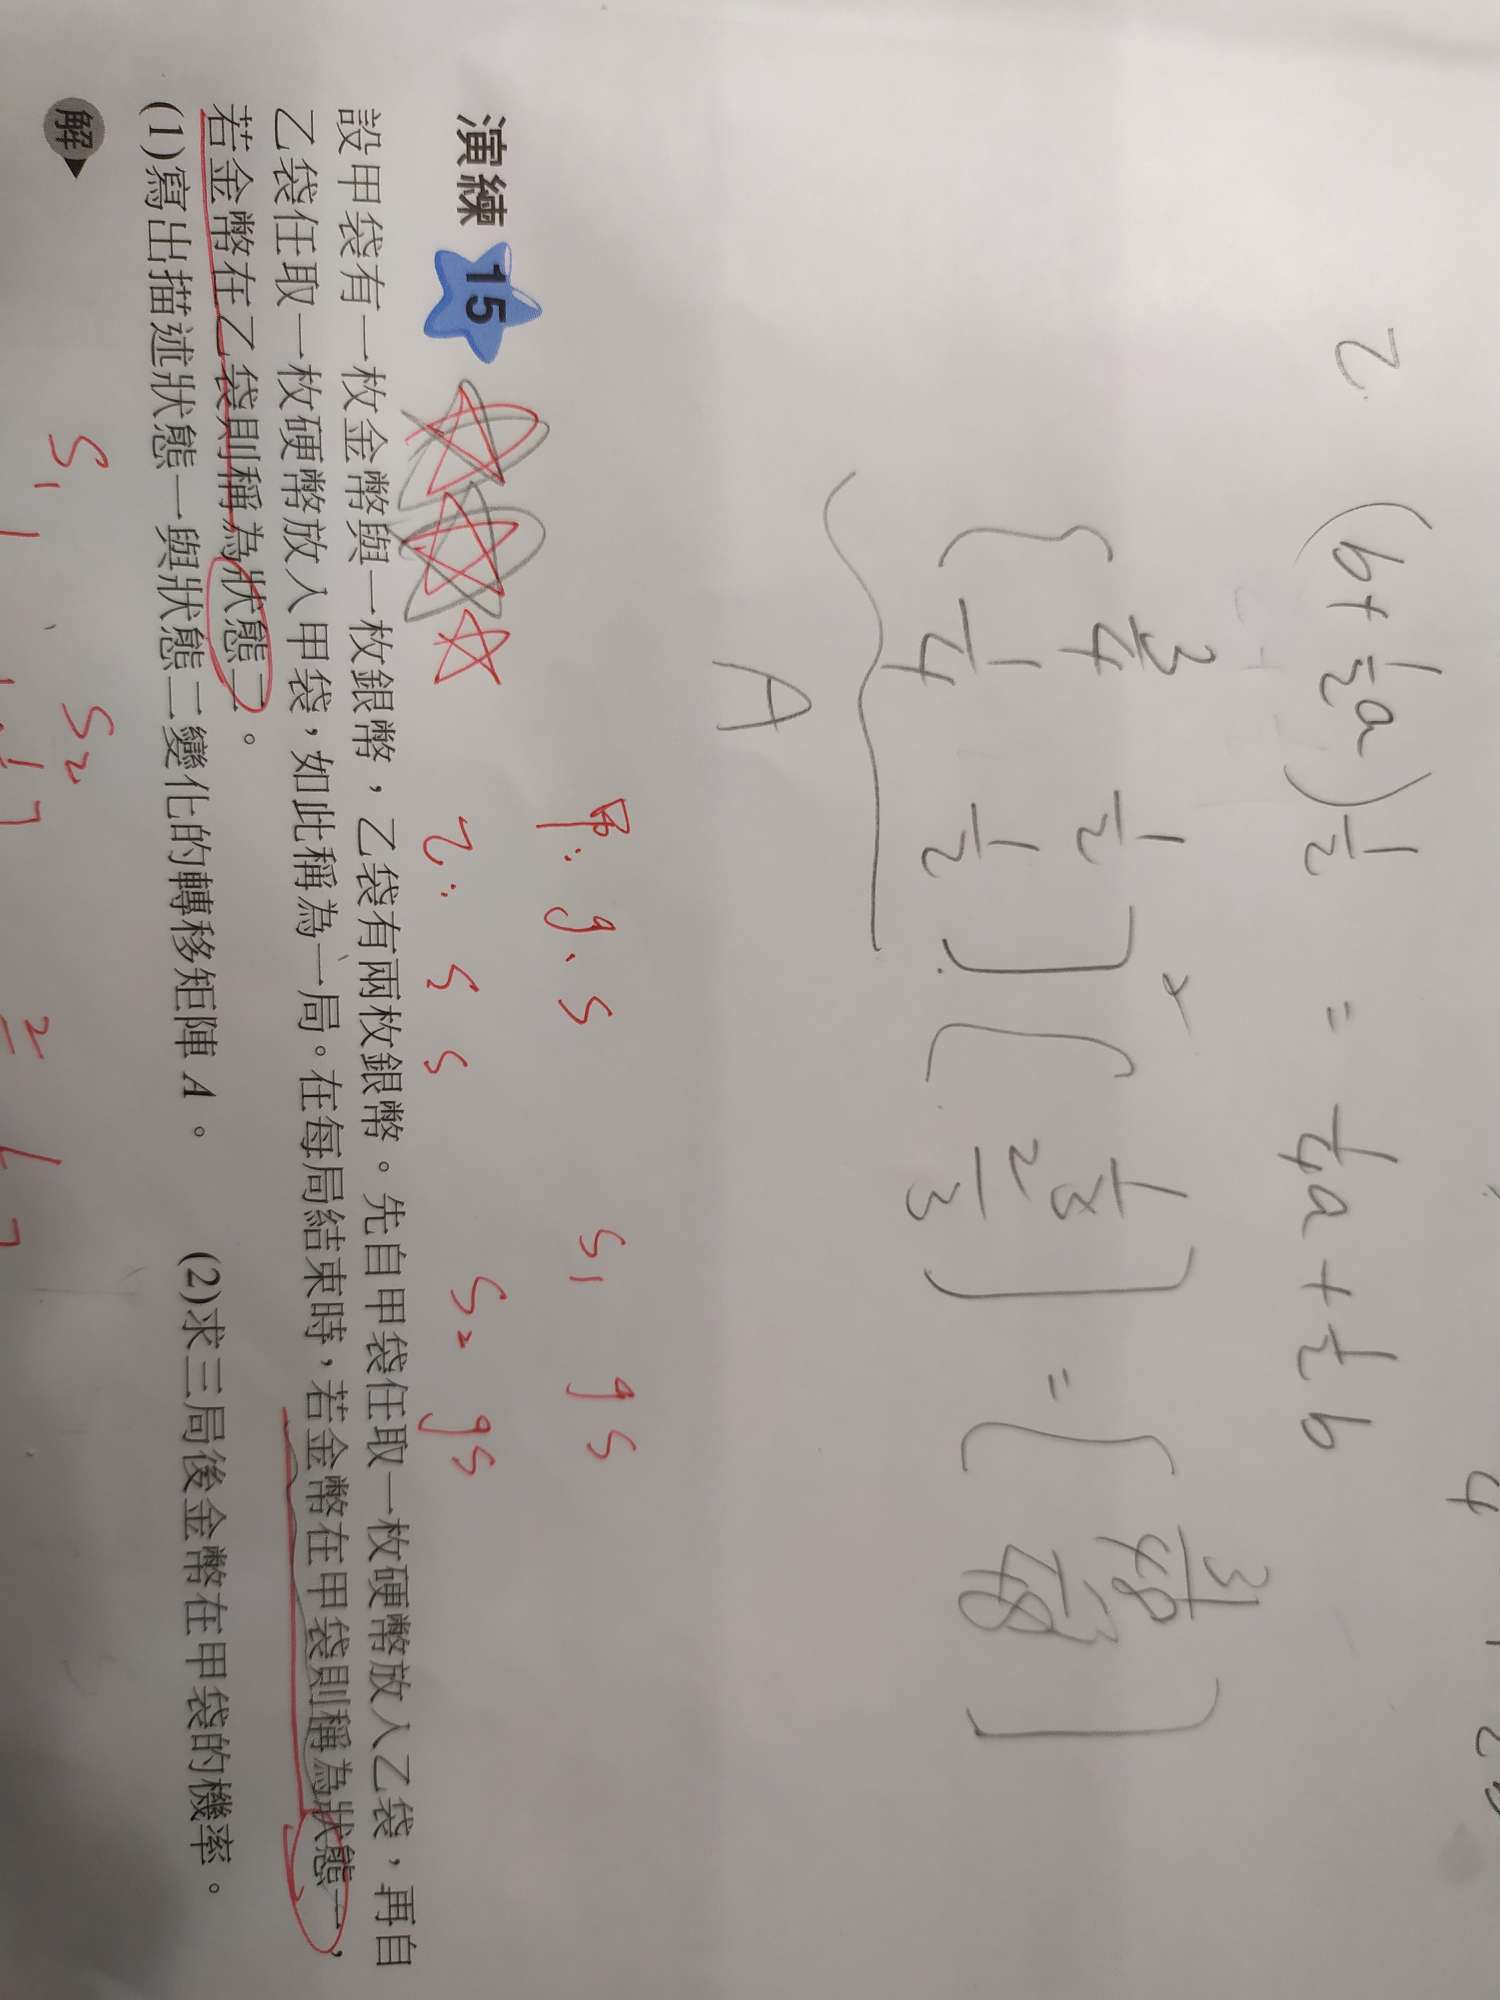 乙
(b+½a)½ = ¼a+½b
[ 3/4 1/2 ] [ 1/3 ] = [ 31/48 ]
[ 1/4 1/2 ] [ 2/3 ]
A
甲: g、s S1 gs
演練 15 乙: s s S2 gs
設甲袋有一枚金幣與一枚銀幣，乙袋有兩枚銀幣。先自甲袋任取一枚硬幣放入乙袋，再自
乙袋任取一枚硬幣放入甲袋，如此稱為一局。在每局結束時，若金幣在甲袋則稱為狀態一，
若金幣在乙袋則稱為狀態二。
(1)寫出描述狀態一與狀態二變化的轉移矩陣 A。 (2)求三局後金幣在甲袋的機率。
解
S1 S2